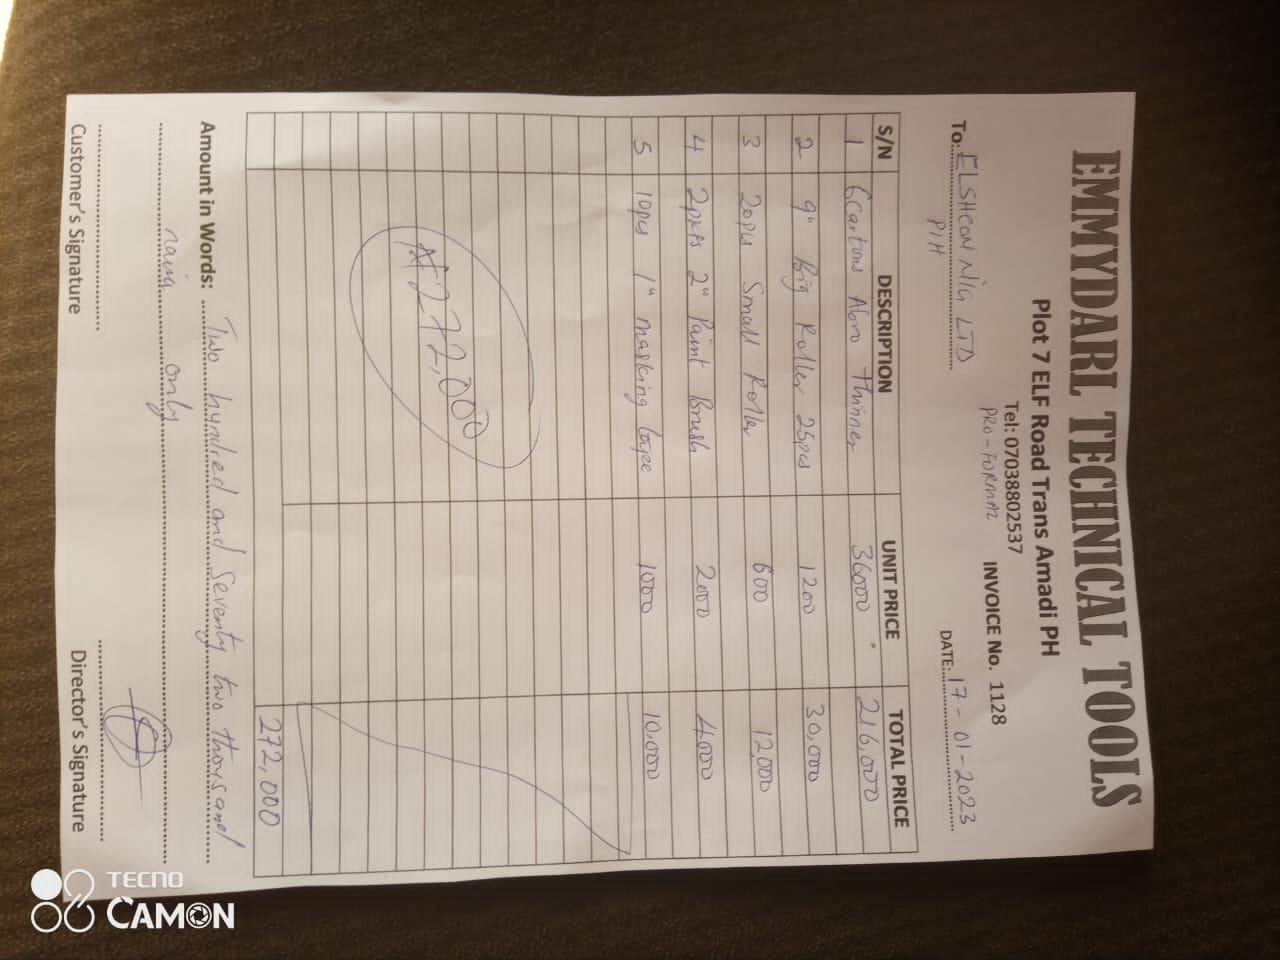 EMMYDARL TECHNICAL TOOLS
Plot 7 ELF Road Trans Amadi PH
Tel: 07038802537
PRO-FORMA INVOICE No. 1128
To: ELSHCON NIG LTD DATE: 17-01-2023
P/H
S/N DESCRIPTION UNIT PRICE TOTAL PRICE
1 6 Cartons Abro Thinner 36000 216,000
2 9" Big Roller 25pcs 1200 30,000
3 20pcs Small Roller 600 12,000
4 2pkts 2" Paint Brush 2000 4000
5 10pcs 1" masking tape 1000 10,000
₦272,000
272,000
Amount in Words: Two hundred and Seventy two thousand
naira only
Customer's Signature Director's Signature
TECNO
CAMON